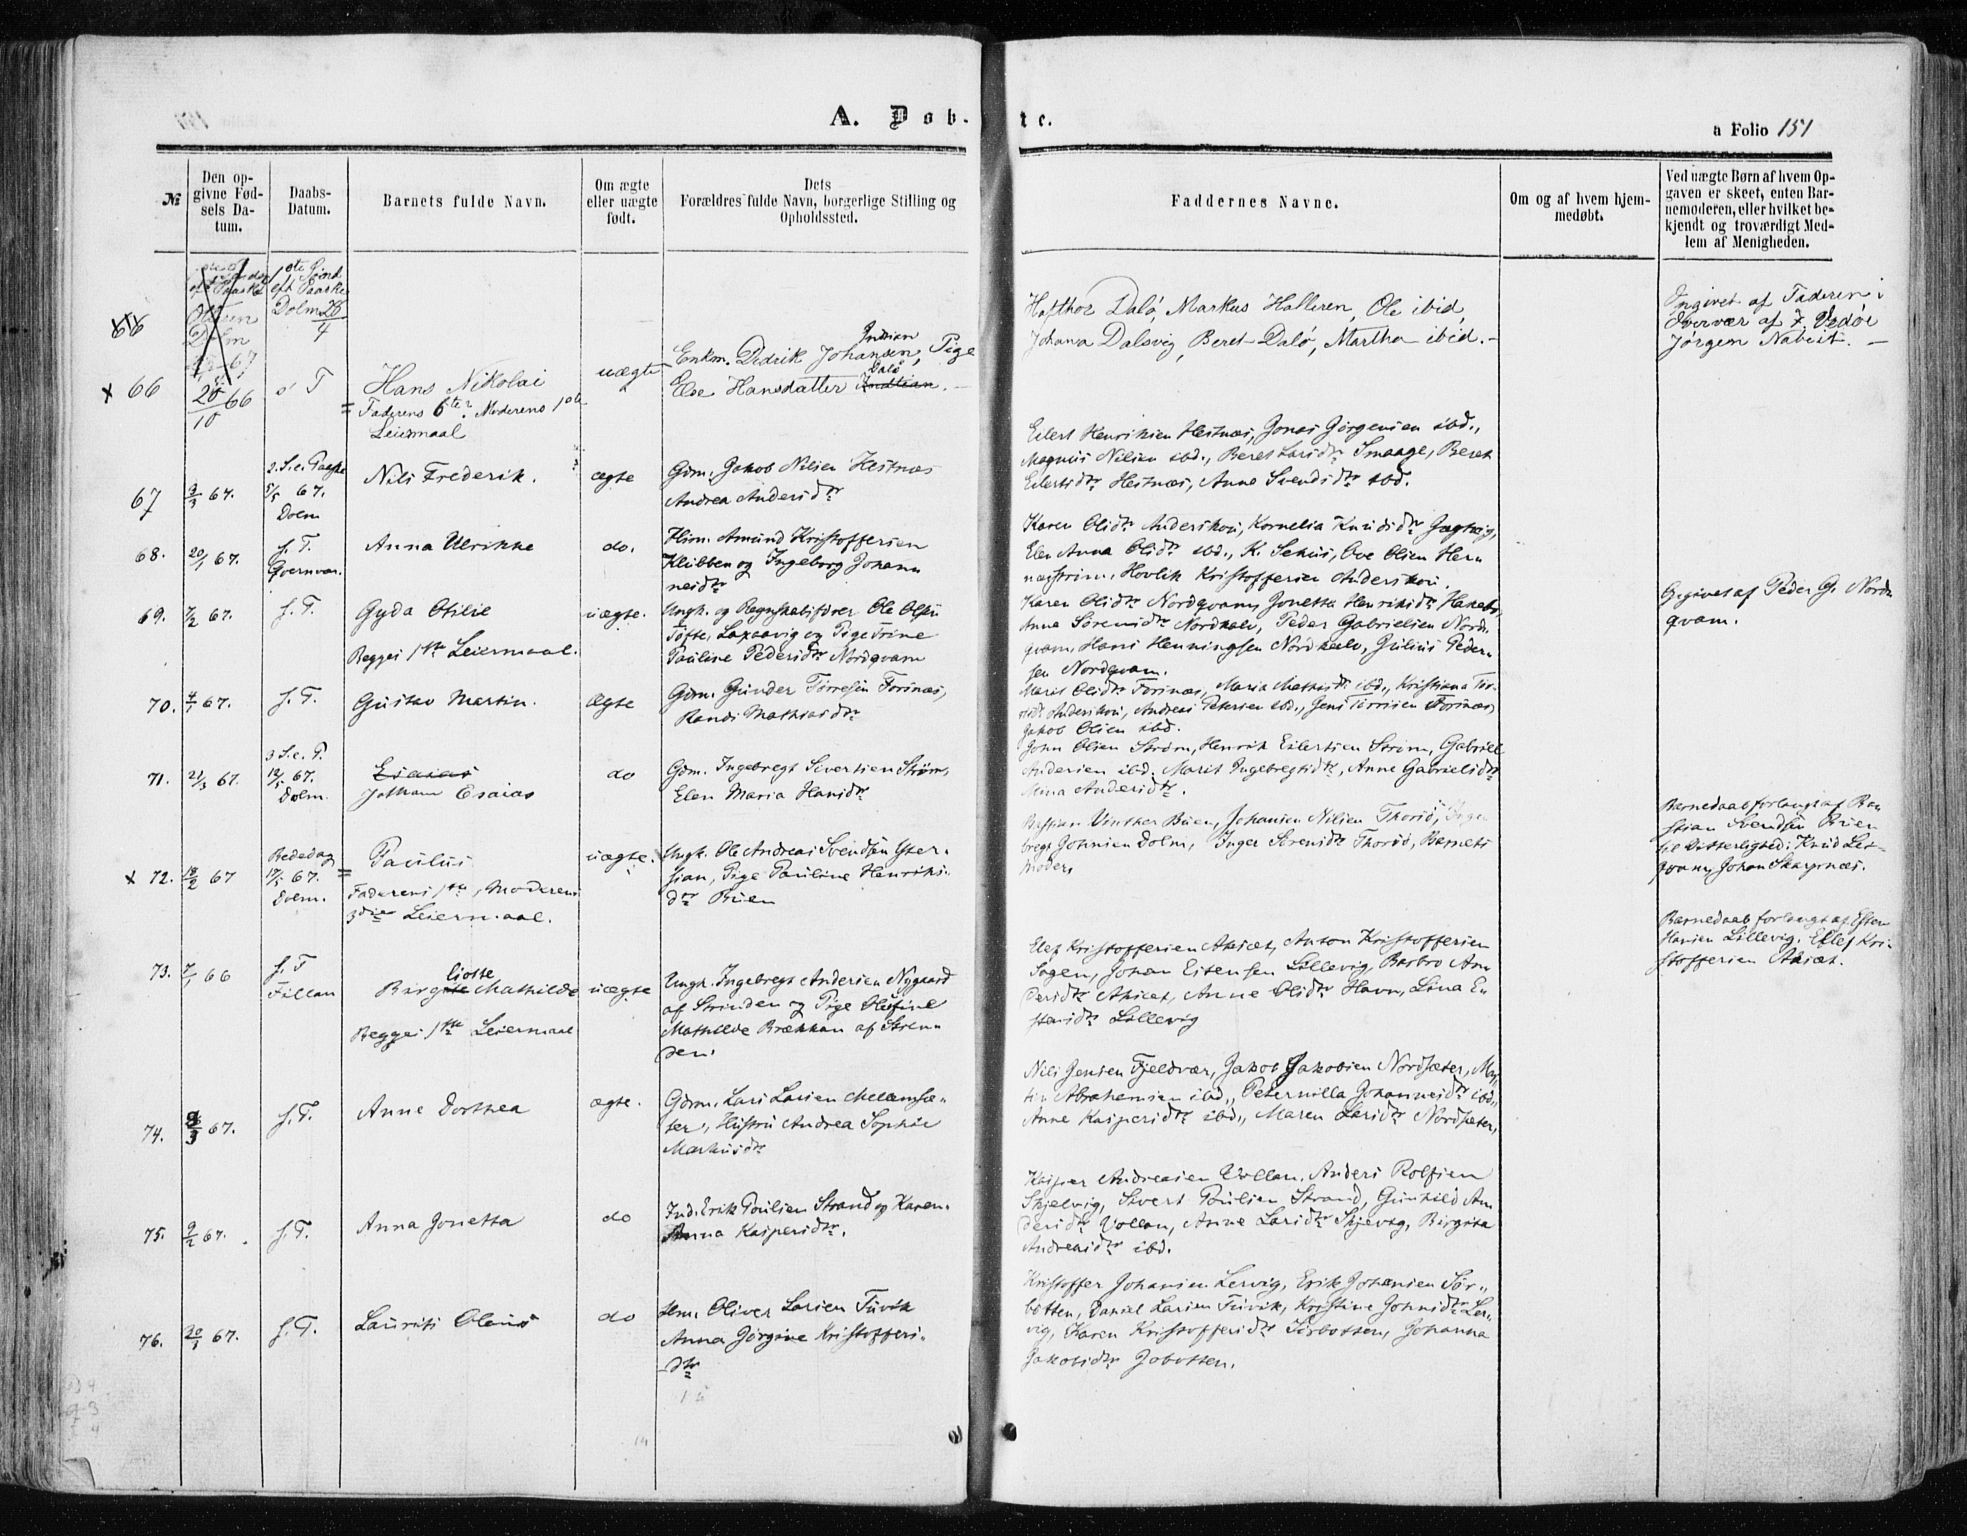 A. Døb-
te.
a Folio 151
№
Den op-
givne Fød-
sels Da-
tum.
Daabs-
Datum.
Barnets fulde Navn.
Om ægte
eller uægte
født.
Dets
Forældres fulde Navn, borgerlige Stilling og
Opholdssted.
Faddernes Navne.
Om og af hvem hjem-
medøbt.
Ved uægte Børn af hvem Op-
gaven er skeet, enten Bar-
nemoderen, eller hvilket be-
kjendt og troværdigt Med-
lem af Menigheden.
66
1ste Sønd
eft Paaske
Dolm 28/4
x 66
20/10 66
Hans Nikolai
Faderens 6te, Moderens 1ste
Leiermaal
uægte
Enkm. Didrik Johansen, Pige
Else Hansdatter Dalø
Hafthor Dalø, Markus Halleren, Ole ibid,
Johanna Dalsvig, Beret Dalø, Martha ibid.
Angivet af Faderen i
Overvær af
Jørgen
67
3/3 67.
2. S. e. Paaske
5/5 67.
Dolm
Nils Frederik.
ægte
Gdm. Jakob Nilsen Hestnæs
Andrea Andersdtr
Eilert Henriksen Hestnæs, Jonas Jørgensen ibd.,
Magnus Nilsen ibd., Beret Larsdtr Smaage, Beret
Eilertsdtr Hestnæs, Anne Svendsdtr ibd.
68.
20/1 67.
s. T.
Qvenvær.
Anna Ulrikke
do.
Husm. Amund Kristoffersen
Klubben og Ingeborg Johan
nesdtr
Karen Olsdtr Anderskou, Kornelia Knudsdtr
Elen Anna Olsdtr ibd., Ove Olsen
Kristoffersen Anderskou.
69.
7/2 67.
s. T.
Gyda Otilie
Begges 1ste Leiermaal.
uægte.
Ungk. og Regnskabsfører Ole Olsen
Tøfte, Laxaavig og Pige Trine
Pauline Pedersdtr Nordqvam
Karen Olsdtr Nordqvam, Jonetta Henriksdtr
Anne Sørensdtr Nordhalv, Peder Gabrielsen Nord-
qvam, Hans Henningsen Nordhalv, Julius Peder-
sen Nordqvam.
Opgivet af Peder G. Nord-
qvam.
70.
4/1 67.
s. T.
Gustav Martin.
Ægte
Gdm. Gunder Tørresen Forsnæs,
Randi Mathiasdtr
Marit Olsdtr Forsnæs, Maria Mathisdtr ibd., Kristiana Tor-
Anderskou, Andreas Petersen ibd., Jens Tørrisen Forsnæs,
Jakob Olsen ibd.
71.
21/3 67.
3 S. e. P.
12/5 67.
Dolm.
Esaias
Johan Esaias
do
Gdm. Ingebregt Sivertsen Strøm,
Elen Maria Hansdtr
John Olsen Strøm, Henrik Eilertsen Strøm, Gabriel
Andersen ibd. Marit Ingebregtsdtr, Anne Gabrielsdtr
Andersdtr.
x 72.
67
Bededag
17/5 67.
Dolm.
Paulus
Faderens 1ste, Moderens
3die Leiermaal.
uægte.
Ungk. Ole Andreas Svendsen Yster-
sian, Pige Pauline Henriks-
dtr Buen
Bastian Vinther Buen, Johansen Nilsen Thorsø, Inge
bregt Johnsen Dolm, Inger Sørensdtr Thorsø, Barnets
Moder,
Barnedaab forlangt af Ba-
stian Svendsen Buen
til Vitterlighed: Knud Les-
qvam, Johan Skarpnæs.
73.
7/1 66
s. T
Fillan
Birgitte Mathilde
Begges 1ste Leiermaal
uægte
Ungk. Ingebregt Andersen Nygaard
af Strinden og Pige Olufine
Mathilde Brækkan af Strin-
den.
Elef Kristoffersen Akset, Anton Kristoffersen
Sagen, Johan Estensen Lillevig, Barbro An-
dersdtr Akset, Anne Olsdtr Havn, Lina E-
stensdtr Lillevig
Barnedaab forlangt af Esten
Hansen Lillevig. Ellef Kri-
stoffersen Akset.
74.
8/3 67.
s. T.
Anne Dorthea
ægte.
Gdm. Lars Larsen Mellemsæ-
ter, Hustru Andrea Sophie
Markusdtr
Nils Jensen Fjeldvær, Jakob Jakobsen Nordsæter, Mar-
tin Abrahamsen ibd., Peternilla Johannesdtr ibd.,
Anne Kaspersdtr ibd., Maren Larsdtr Nordsæter,
75.
9/2 67.
s. T.
Anna Jonetta
do
Ind. Erik Poulsen Strand og Karen
Anna Kaspersdtr.
Kasper Andreasen Vollan, Anders Rolfsen
Skjelvig, Sivert Poulsen Strand, Gunhild An-
dersdtr Vollan, Anne Larsdtr Skjelvig, Birgitta
Andreasdtr ibd.
76.
20/1 67.
s. T.
Laurits Olaus
do
Hm. Oliver Larsen Tuvik
Anna Jørgine Kristoffers-
dtr
Kristoffer Johansen Lervig, Erik Johansen Sør-
botten, Daniel Larsen Tuvik, Kristine Johnsdtr Ler-
vig, Karen Kristoffersdtr Sørbotten, Johanna
Jakobsdtr Jobotten.